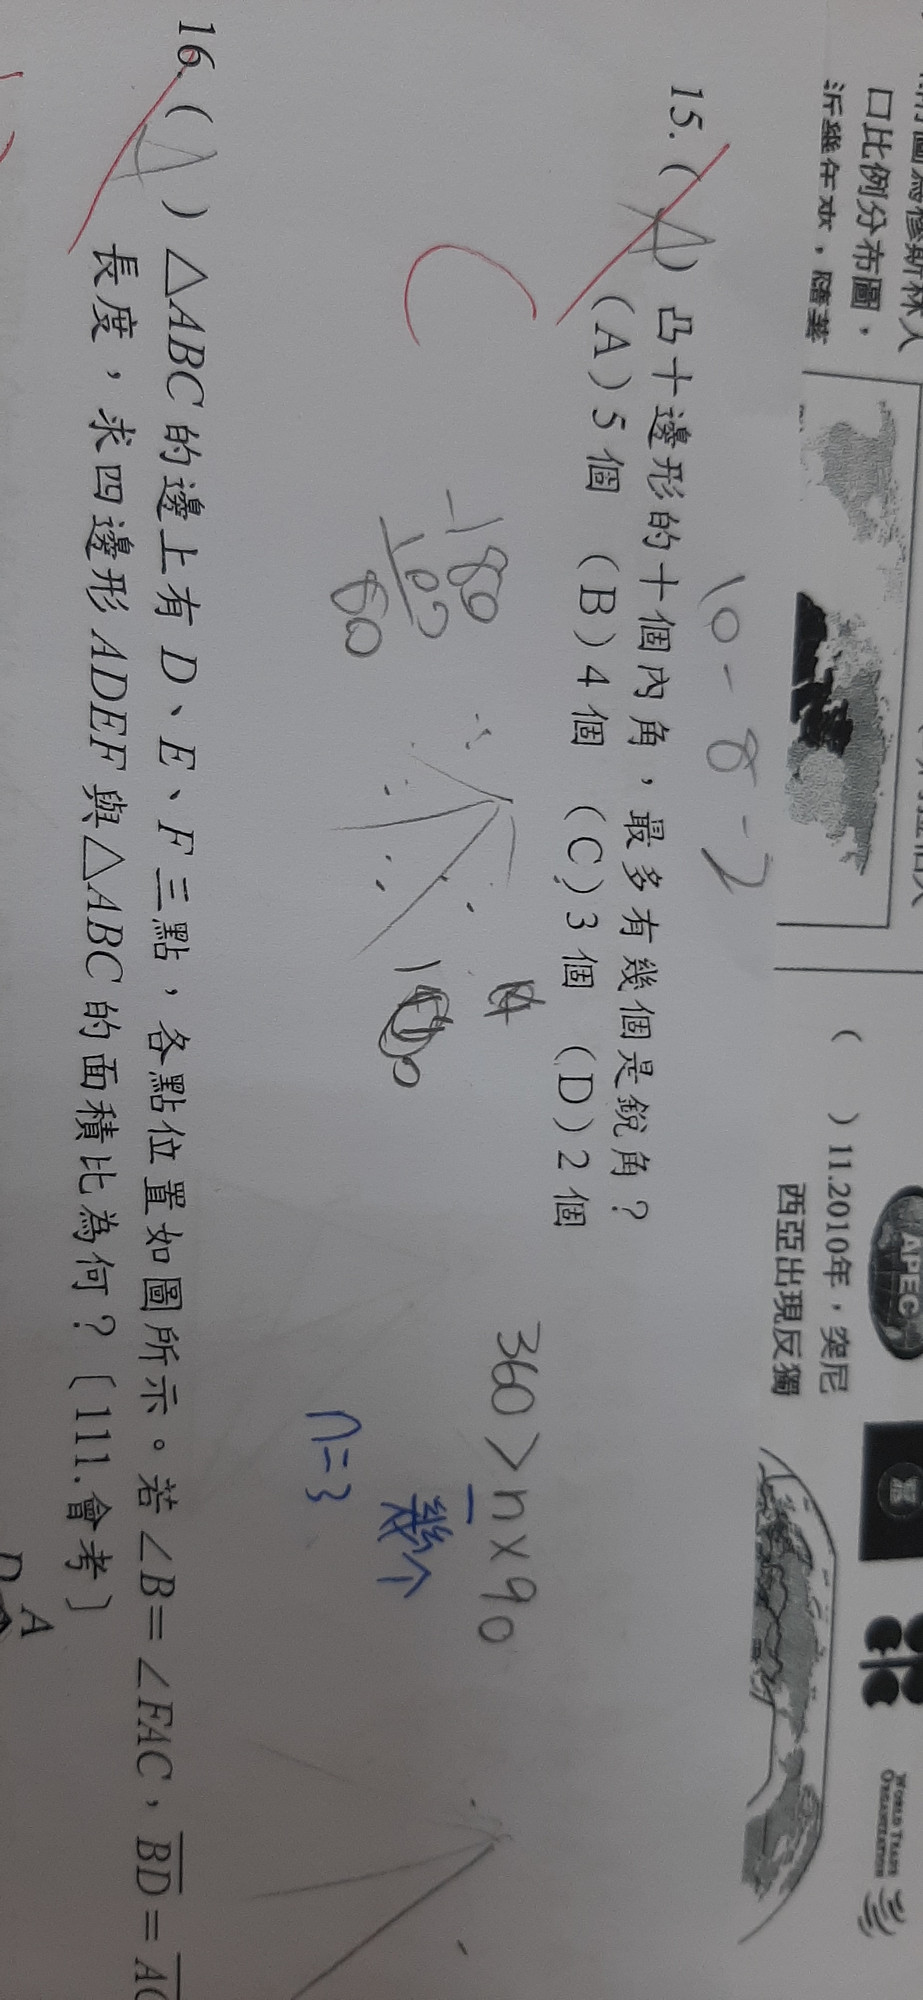 口比例分布圖，
( )11.2010年，突尼
西亞出現反獨
APEC
WORLD TRADE
ORGANIZATION
10-8-2
15.(A) 凸十邊形的十個內角，最多有幾個是銳角？
(A)5個 (B)4個 (C)3個 (D)2個
360>n×90
幾个
n=3
16.(A) △ABC的邊上有D、E、F三點，各點位置如圖所示。若∠B=∠FAC，BD=AC
長度，求四邊形ADEF與△ABC的面積比為何？〔111.會考〕
A
D